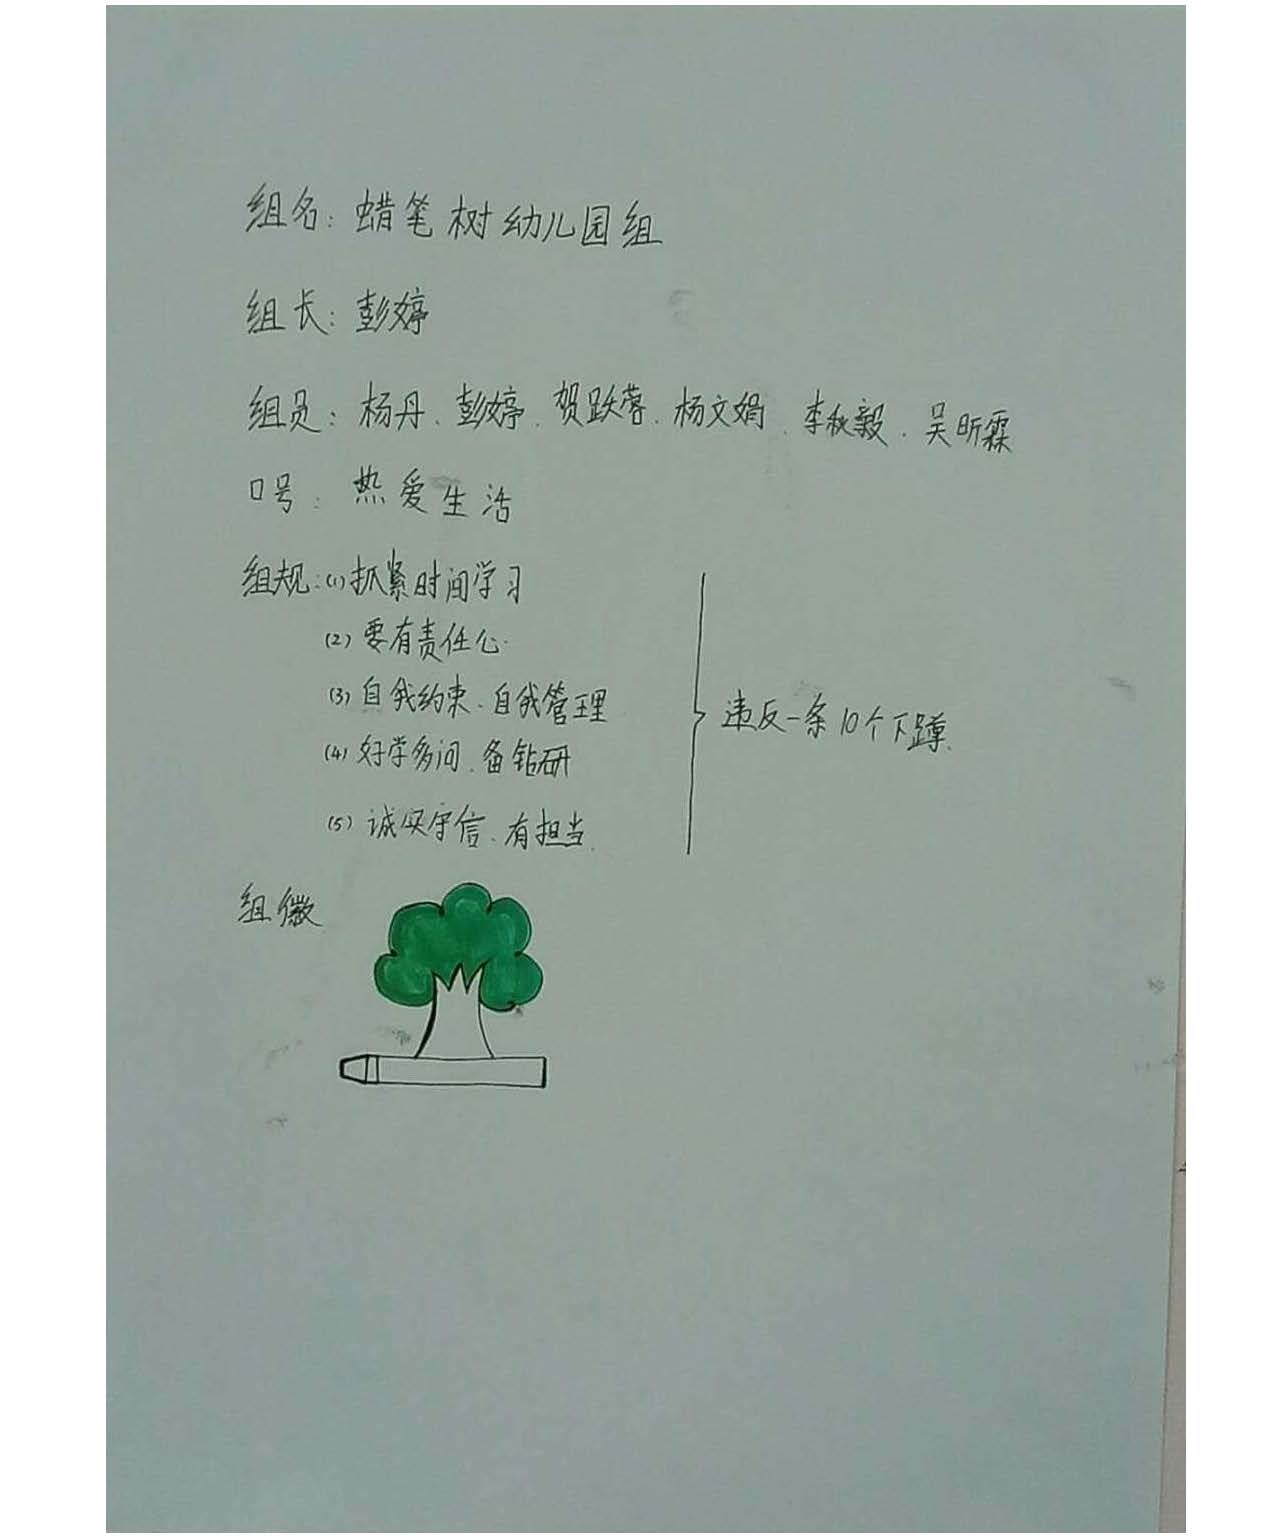 组名：蜡笔树幼儿园组
组长：彭婷
组员：杨丹、彭婷、贺跃蓉、杨文娟、李秋毅、吴昕霖
口号：热爱生活
组规：(1) 抓紧时间学习
(2) 要有责任心.
(3) 自我约束、自我管理
(4) 好学多问、备钻研
(5) 诚实守信、有担当.
违反一条10个下蹲.
组徽